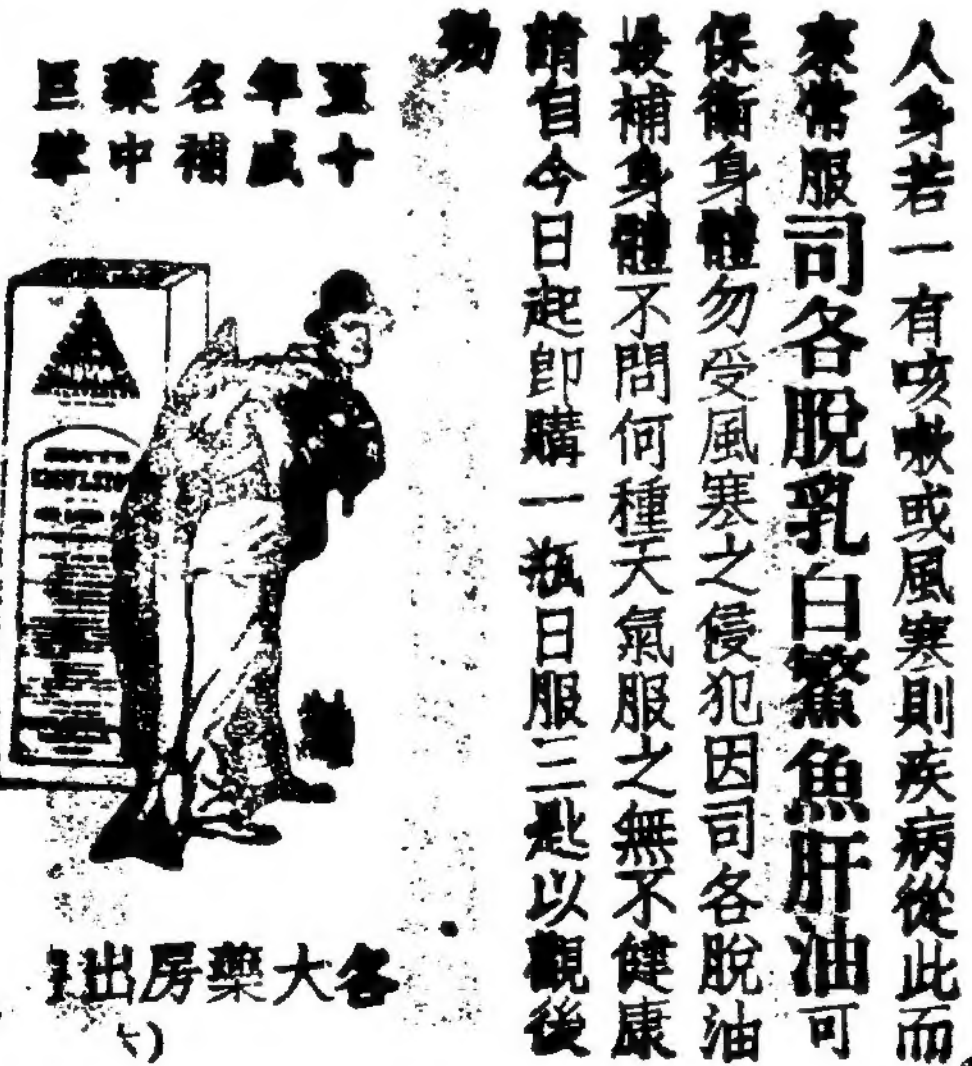 人身若一有咳嗽或風寒則疾病從此而
來常服司各脫乳白鰵魚肝油可
保衛身體勿受風寒之侵犯因司各脫油
最補身體不問何種天氣服之無不健康
請自今日起卽購一瓶日服三匙以觀後
効
五十
年威
名補
藥中
巨擘
各大藥房出